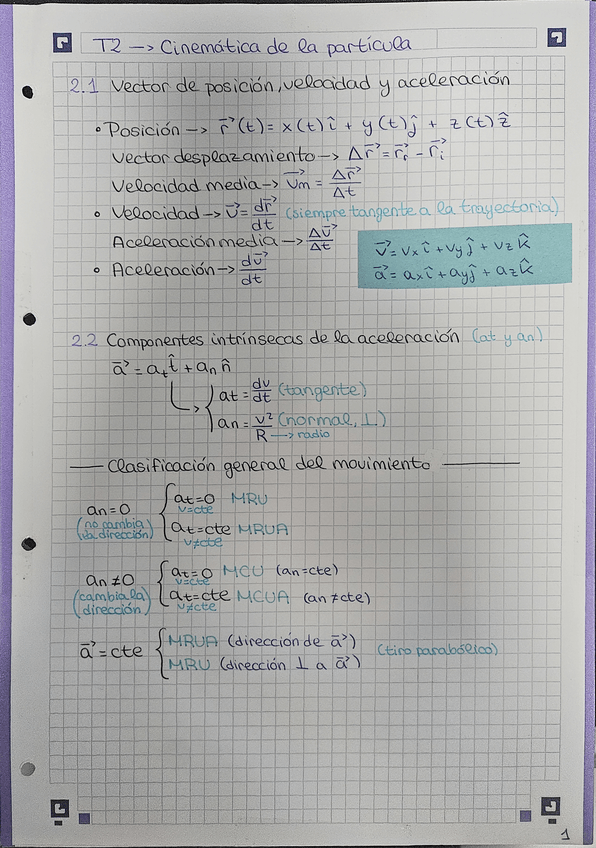 T2 → Cinemática de la partícula
2.1 Vector de posición, velocidad y aceleración
• Posición → r⃗(t) = x(t) î + y(t) ĵ + z(t) ẑ
Vector desplazamiento → Δr⃗ = r⃗f - r⃗i
Velocidad media → v⃗m = Δr⃗/Δt
• Velocidad → v⃗ = dr⃗/dt (siempre tangente a la trayectoria)
Aceleración media → Δv⃗/Δt
• Aceleración → dv⃗/dt
v⃗ = vx î + vy ĵ + vz k̂
a⃗ = ax î + ay ĵ + az k̂
2.2 Componentes intrínsecas de la aceleración (at y an)
a⃗ = at t̂ + an n̂
at = dv/dt (tangente)
an = v²/R (normal, ⊥)
→ radio
Clasificación general del movimiento
an = 0 { at = 0 MRU
v = cte
(no cambia la dirección) at = cte MRUA
v ≠ cte
an ≠ 0 { at = 0 MCU (an = cte)
v = cte
(cambia la dirección) at = cte MCUA (an ≠ cte)
v ≠ cte
a⃗ = cte { MRUA (dirección de a⃗)
MRU (dirección ⊥ a a⃗)
(tiro parabólico)
1